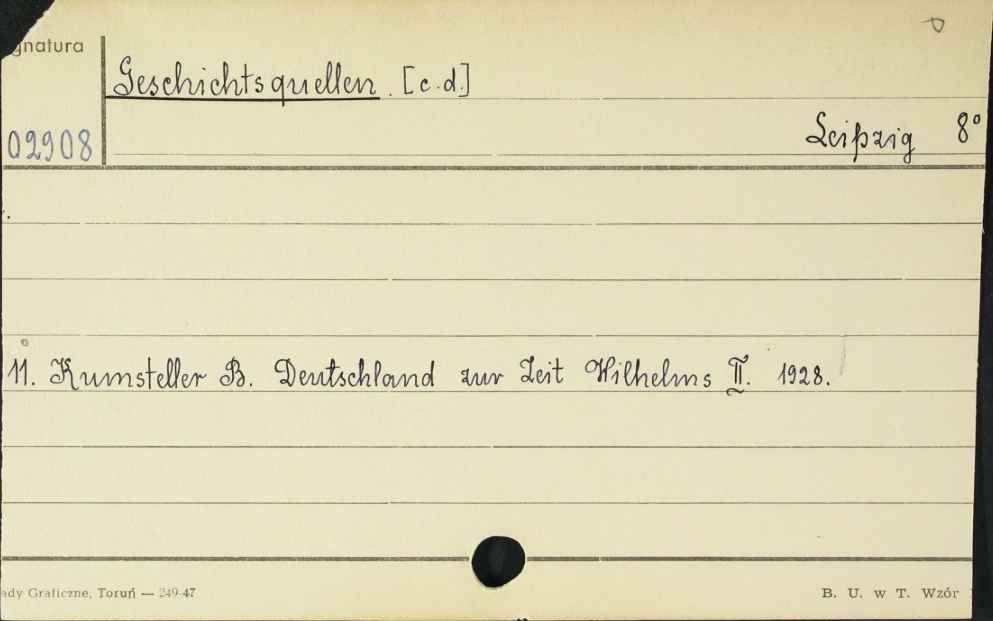 gnatura
Geschichtsquellen. [c.d.]
02908
Leipzig 8°
11. Kumsteller B. Deutschland zur Zeit Wilhelms II. 1928.
ady Graficzne, Toruń — 249-47
B. U. w T. Wzór